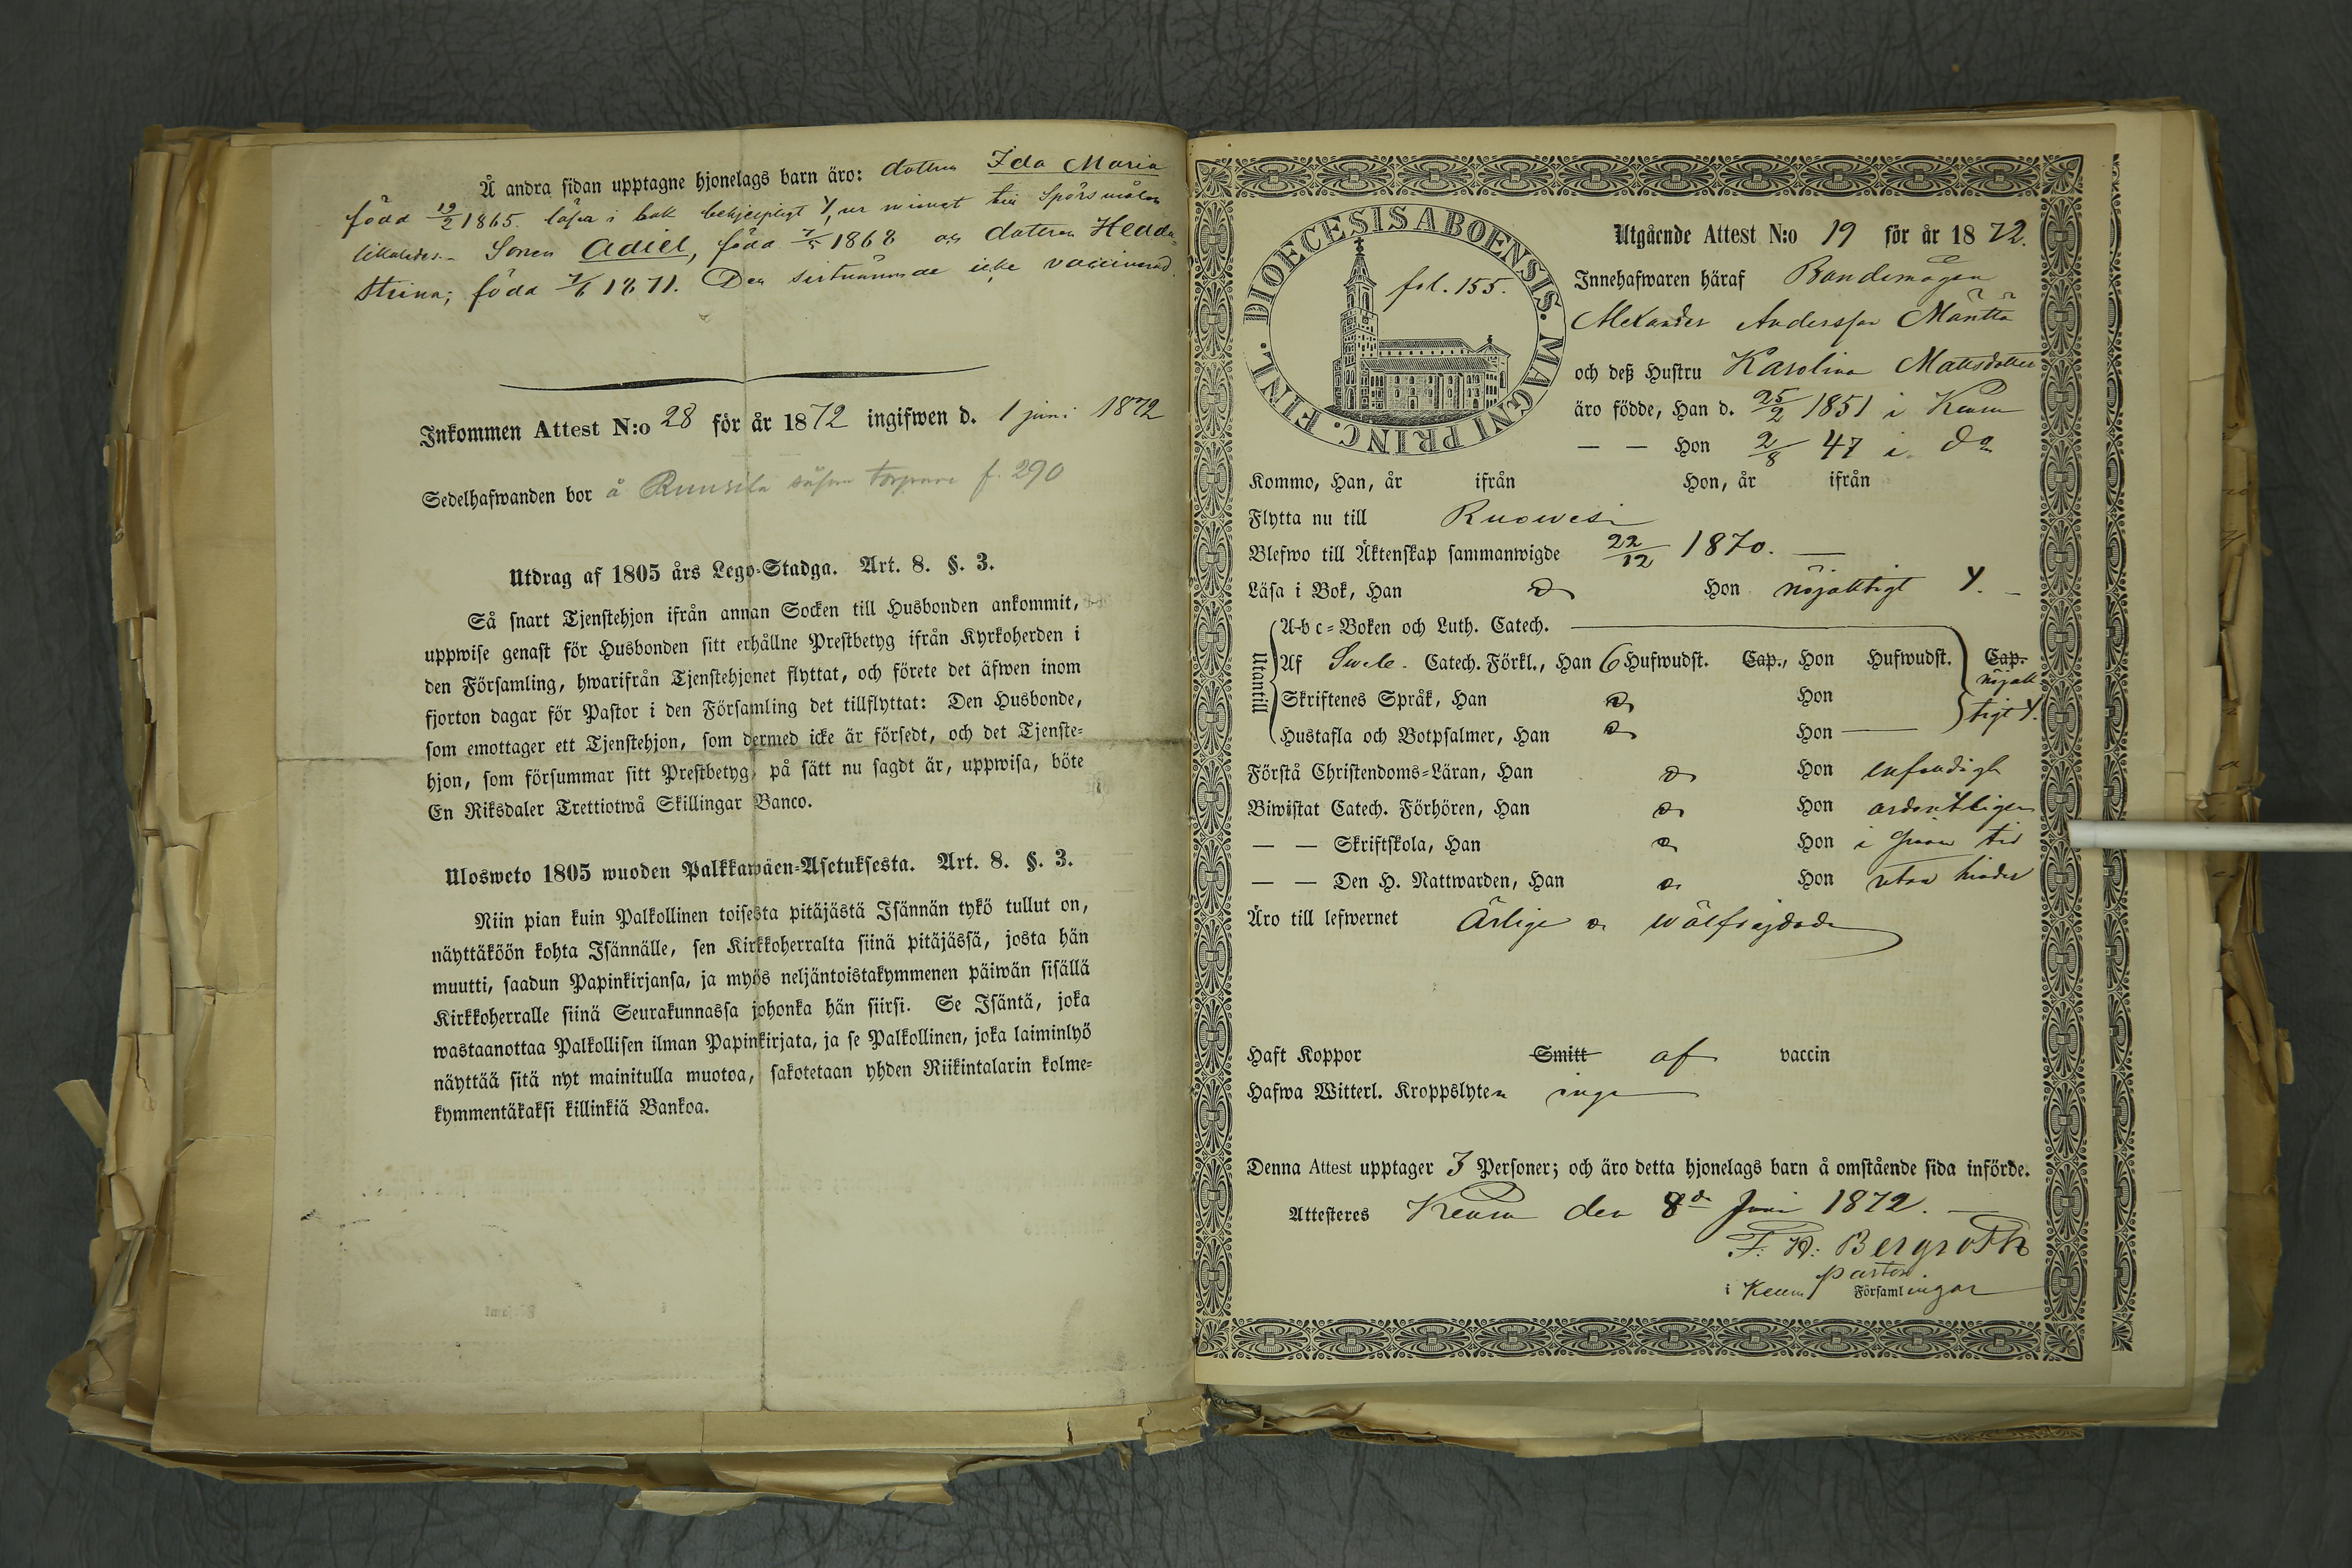 Å andra sidan upptagne hjonelags barn äro: dottren Ida Maria
född 19/2 1865. läsa i bok behjelpligt
likaledes. Sonen Adiel, född 7/5 1868 och dottren Hedda
Stina; född 7/6 1871. Den sistnämnde icke vaccinerad.
Inkommen Attest N:o 28 för år 1872 ingifwen d. 1 juni 1872
Sedelhafwanden bor å Ruusila torpare f. 290
Utdrag af 1805 års Lego-Stadga. Art. 8. §. 3.
Så snart Tjenstehjon ifrån annan Socken till Husbonden ankommit,
uppwise genast för Husbonden sitt erhållne Prestbetyg ifrån Kyrkoherden i
den Församling, hwarifrån Tjenstehjonet flyttat, och förete det äfwen inom
fjorton dagar för Pastor i den Församling det tillflyttat: Den Husbonde,
som emottager ett Tjenstehjon, som dermed icke är försedt, och det Tjenste-
hjon, som försummar sitt Prestbetyg, på sätt nu sagdt är, uppwisa, böte
En Riksdaler Trettiotwå Skillingar Banco.
Ulosweto 1805 wuoden Palkkawäen-Asetuksesta. Art. 8. §. 3.
Niin pian kuin Palkollinen toisesta pitäjästä Isännän tykö tullut on,
näyttäköön kohta Isännälle, sen Kirkkoherralta siinä pitäjässä, josta hän
muutti, saadun Papinkirjansa, ja myös neljäntoistakymmenen päiwän sisällä
Kirkkoherralle siinä Seurakunnassa johonka hän siirsi. Se Isäntä, joka
wastaanottaa Palkollisen ilman Papinkirjata, ja se Palkollinen, joka laiminlyö
näyttää sitä nyt mainitulla muotoa, sakotetaan yhden Riikintalarin kolme-
kymmentäkaksi killinkiä Bankoa.
DIOECESIS ABOENSIS. MAGNI PRINC. FINL.
fol. 155.
Utgående Attest N:o 19 för år 1872.
Innehafwaren häraf Bondemågen
Alexander Andersson Mänttä
och deß Hustru Karolina Mattsdotter
äro födde, Han d. 25/2 1851 i Keuru
— — Hon 2/8 47 i do
Kommo, Han, år ifrån Hon, år ifrån
Flytta nu till Ruowesi
Blefwo till Äktenskap sammanwigde 22/12 1870.
Läsa i Bok, Han o Hon nöjaktigt Y.
Utantill
A-b c-Boken och Luth. Catech.
Af Sweb. Catech. Förkl., Han 6 Hufwudst. Cap., Hon Hufwudst. Cap.
Skriftenes Språk, Han o Hon nöjak
Hustafla och Botpsalmer, Han o Hon tigt Y.
Förstå Christendoms-Läran, Han o Hon enfaldigt
Biwistat Catech. Förhören, Han o Hon ordentligen
— — Skriftskola, Han o Hon i sinom tid
— — Den H. Nattwarden, Han o Hon utan hinder
Äro till lefwernet Ärlige o wälfrejdade
Haft Koppor Smitt af vaccin
Hafwa Witterl. Kroppslyten inga
Denna Attest upptager 3 Personer; och äro detta hjonelags barn å omstående sida införde.
Attesteres Keuru den 8de Juni 1872.
F. H: Bergroth
Pastor
i Keuru Församlingar